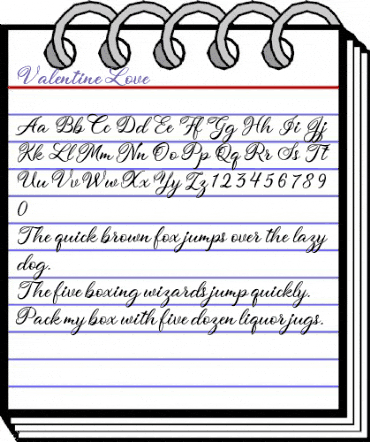 Valentine Love
Aa Bb Cc Dd Ee Ff Gg Hh Ii Jj
Kk Ll Mm Nn Oo Pp Qq Rr Ss Tt
Uu Vv Ww Xx Yy Zz 1 2 3 4 5 6 7 8 9
0
The quick brown fox jumps over the lazy
dog.
The five boxing wizards jump quickly.
Pack my box with five dozen liquor jugs.